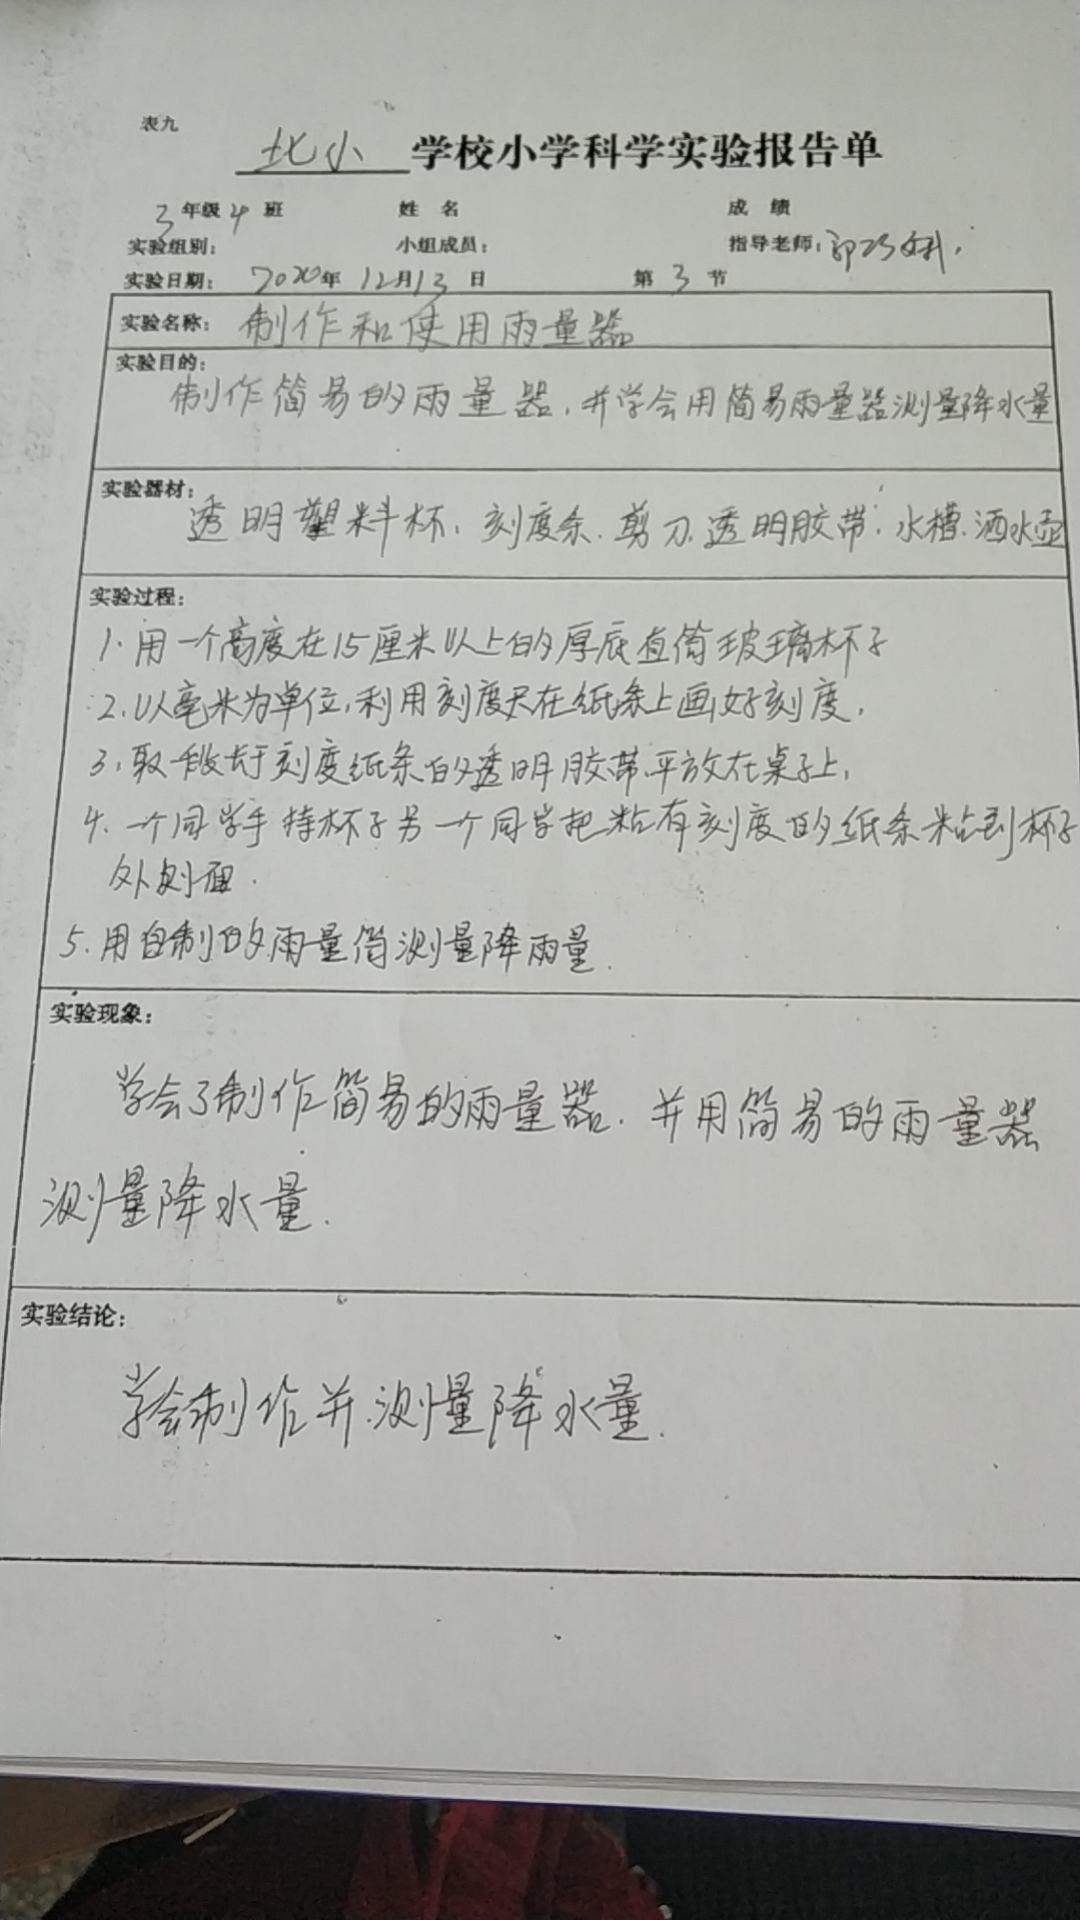 表九
北小 学校小学科学实验报告单
3 年级 4 班 姓 名 成 绩
实验组别： 小组成员： 指导老师：郭巧
实验日期： 2020年 12月13 日 第 3 节
实验名称： 制作和使用雨量器
实验目的：
制作简易的雨量器，并学会用简易雨量器测量降水量
实验器材：
透明塑料杯、刻度条、剪刀、透明胶带、水槽、洒水壶
实验过程：
1. 用一个高度在15厘米以上的厚底直筒玻璃杯子
2. 以毫米为单位，利用刻度尺在纸条上画好刻度，
3、取一段长于刻度纸条的透明胶带，平放在桌子上，
4. 一个同学手持杯子另一个同学把粘有刻度的纸条粘到杯子
外侧面.
5. 用自制的雨量筒测量降雨量.
实验现象：
学会了制作简易的雨量器. 并用简易的雨量器
测量降水量.
实验结论：
学会制作并测量降水量.